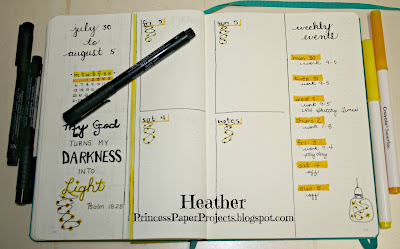 july 30
to
august 5
m t w t f s s
My God
TURNS MY
DARKNESS
INTO
Light
Psalm 18:28
fri 3
sat 4
sun 5
notes
weekly
events
mon 30
work 9-5
tues 31
work 9-5
wed 1
work 9-5
thurs 2
work 9-3
fri 3
work 9-4
play day
sat 4
off
sun 5
off
Heather
PrincessPaperProjects.blogspot.com